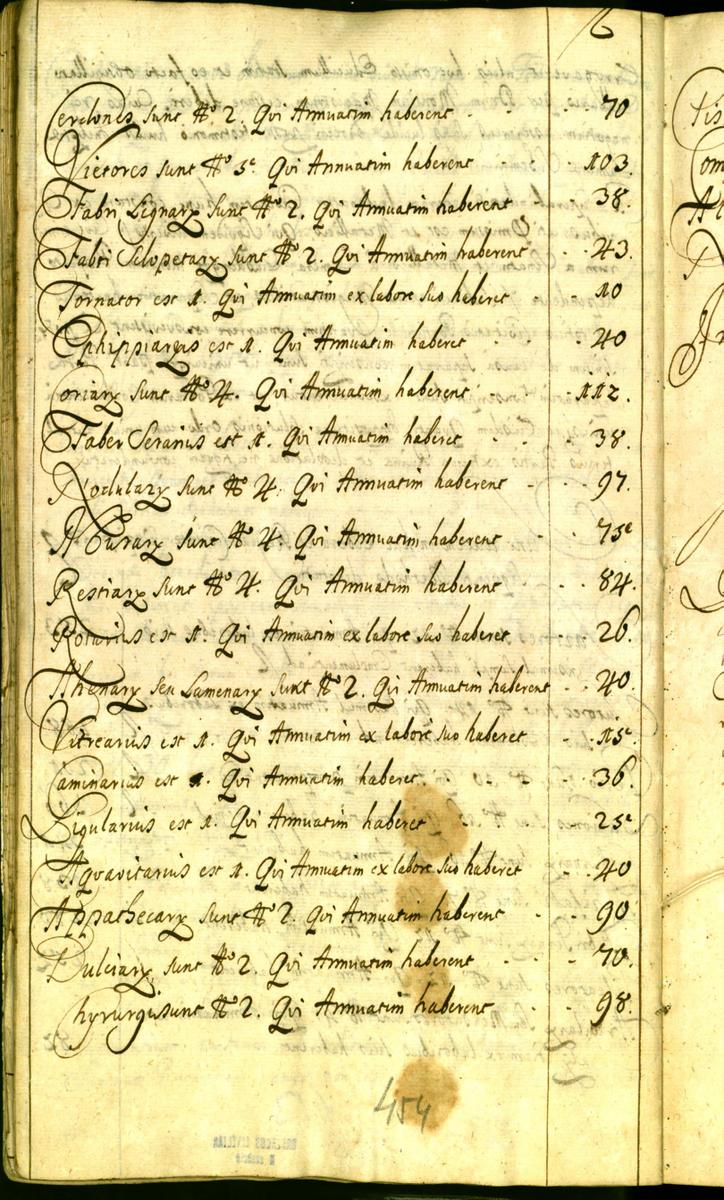 Cerdones sunt No 2. Qvi Annuatim haberent 70
Vietores sunt No 5. Qvi Annuatim haberent 103.
Fabri Lignary sunt No 2. Qvi Annuatim haberent 38.
Fabri Sclopetary sunt No 2. Qvi Annuatim haberent 43.
Tornator est 1. Qvi Annuatim ex labore suo haberet 10
Ephippiarius est 1. Qvi Annuatim haberet 40
Coriary sunt No 4. Qvi Annuatim haberent 112.
Faber Serarius est 1. Qvi Annuatim haberet 38.
Nodulary sunt No 4. Qvi Annuatim haberent 97.
Murary sunt No 4. Qvi Annuatim haberent 75
Restiary sunt No 4. Qvi Annuatim haberent 84.
Rotarius est 1. Qvi Annuatim ex labore suo haberet 26.
Ahenary seu Lamenary sunt No 2. Qvi Annuatim haberent 40.
Vitrearius est 1. Qvi Annuatim ex labore suo haberet 15.
Caminarius est 1. Qvi Annuatim haberet 36.
Ligularius est 1. Qvi Annuatim haberet 25
Aqvavitarius est 1. Qvi Annuatim ex labore suo haberet 40
Appathecary sunt No 2. Qvi Annuatim haberent 90
Dulciary sunt No 2. Qvi Annuatim haberent 70.
Chyrurgi sunt No 2. Qvi Annuatim haberent 98.
454